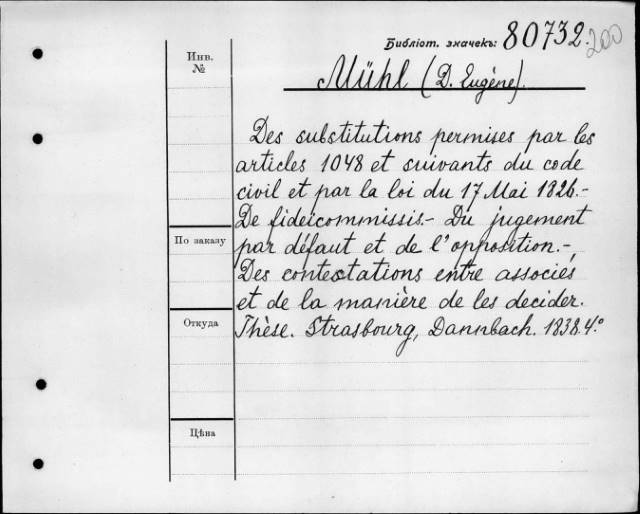 Библіот. значекъ: 80732. 200
Инв. №
Mühl (D. Eugène).
Des substitutions permises par les
articles 1048 et suivants du code
civil et par la loi du 17 Mai 1826.-
De fideicommissis.- Du jugement
По заказу
par défaut et de l'opposition.-
Des contestations entre associés
et de la manière de les decider.
Откуда
Thèse. Strasbourg, Dannbach. 1838. 4.°
Цѣна